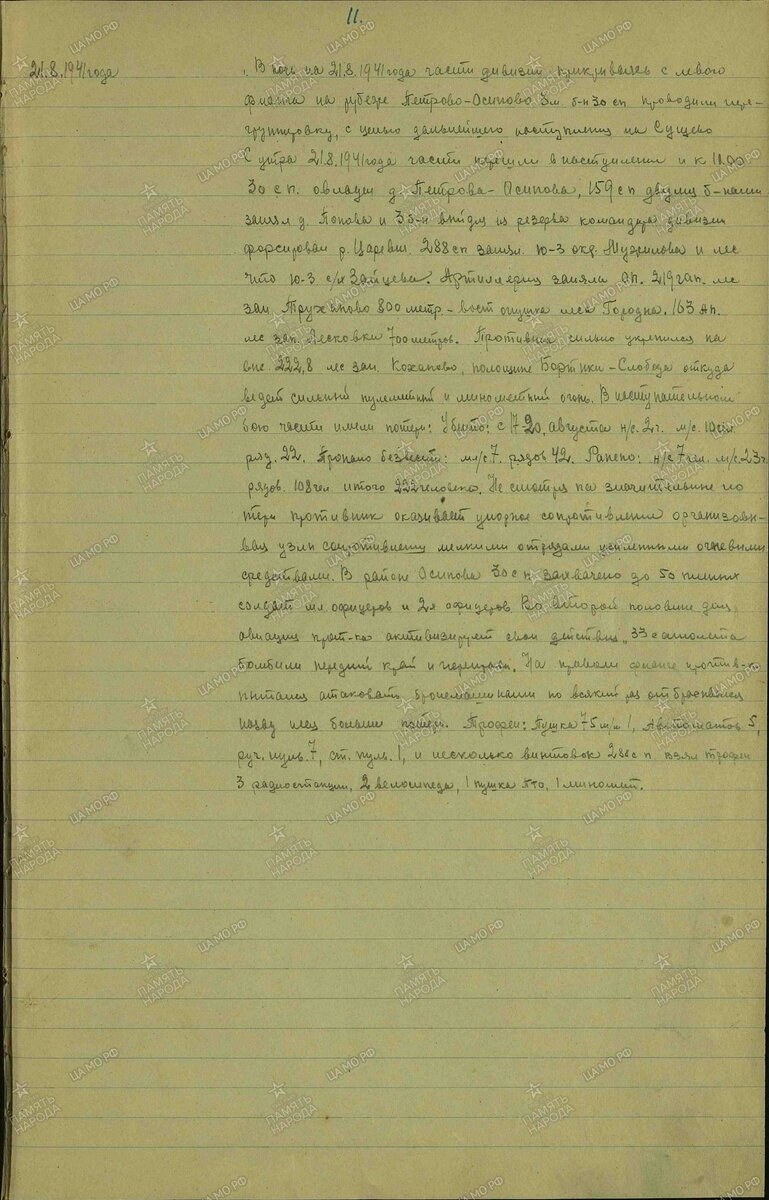 11.
21.8.1941 года
В ночь на 21.8.1941 года части дивизии, прикрываясь с левого
фланга на рубеже Петрово-Осипово 3м б-н 30 сп проводили пере-
группировку, с целью дальнейшего наступления на Сущево
С утра 21.8.1941 года части перешли в наступление и к 11.00
30 с п. овладел д. Петрова-Осипова, 159 сп двумя б-нами
занял д. Попова и 3 б-н выйдя из резерва командира дивизии
форсировал р. Царевич. 288 сп занял. ю-з окр. Мужилова и лес
что ю-з с/х Зайцева. Артиллерия заняла ОП. 219 гап. лес
зап. Труханово 800 метр. вост опушка леса Городна. 163 ап.
лес зап. Лесковка 700 метров. Противник сильно укрепился на
выс. 222,8 лес зап. Кохапово, Бортники-Слобода откуда
ведет сильный пулеметный и минометный огонь. В наступательном
бою части имели потери: Убито: с 17-20, августа н/с. 2ч. м/с. 10чел
ряд. 22. Пропало безвести: мл/с 7. рядов 42. Ранено: н/с 7 чел. м/с. 23 ч.
рядов. 108 чел итого 222 человека. Не смотря на значительные по
тери противник оказывает упорное сопротивление организовы-
вая узлы сопротивления мелкими отрядами усиленными огневыми
средствами. В районе Осипова 30 с п. захвачено до 50 пленных
солдат мл. офицеров и 2х офицеров Во второй половине дня,
авиация прот-ка активизирует свои действия, 33 самолета
бомбили передний край и переправы. На правом фланге против-к
пытался атаковать бронемашинами но всякий раз отбрасывался
назад неся большие потери. Трофеи: Пушка 75 м/м 1, Автоматов 5,
руч. пуль. 7, ст. пуль. 1, и несколько винтовок 288 с п. взял трофеи
3 радиостанции, 2 велосипеда, 1 пушка пто, 1 миномет.